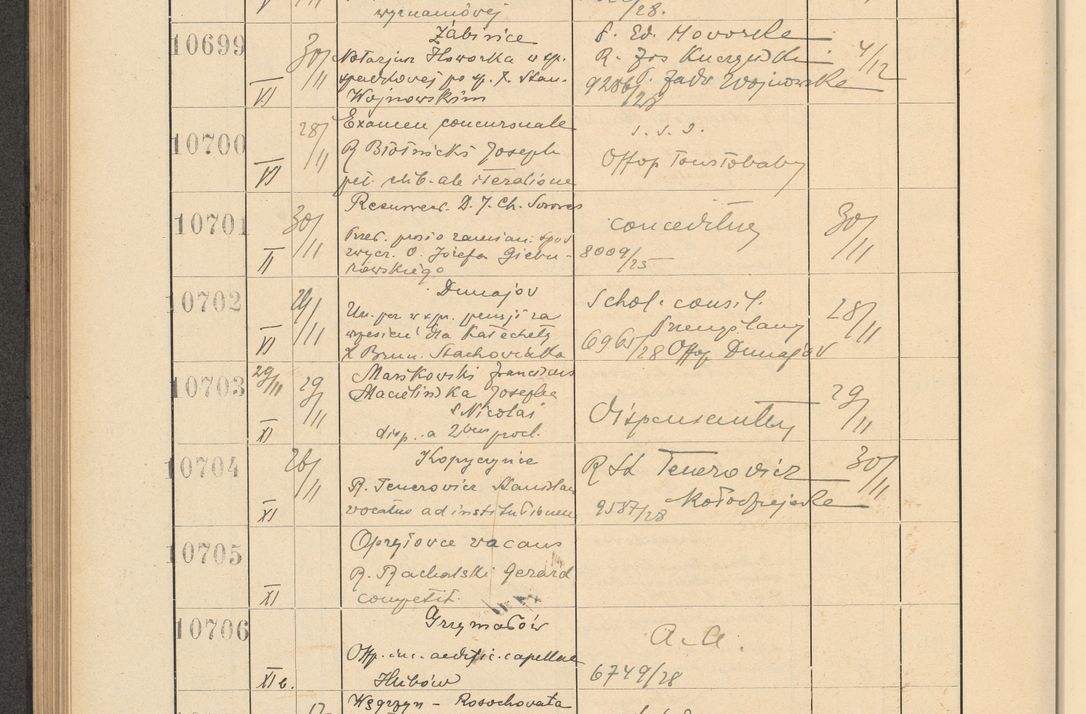 wyznaniowej
/28.
10699
VI
30/11
Żabińce
Notarjusz Howorka w sp.
spadkowej po sp. X. Stan.
Wojnowskim
P. Ed. Howorka
R. Jos Kuczyński
9286/28 P. Jadw Wojnowska
4/12
10700
VI
28/11
Examen concursuale
R Błotnicki Joseph
pet. lib. ab iteratione
s. s. s.
Off op Toustobaby
10701
II
30/11
Przeł. prosi o zamian. spow
wycz. O. Józefa Giebu-
rowskiego
conceditur
8009/25
30/11
10702
VI
29/11
Dunajow
Un. par w sp. pensji za
wrzesień dla Katechety
X Brun. Stachowiaka
Schol. consil.
Przemyślany
6965/28 Off op Dunajów
28/11
10703
29/11
XI
29/11
Markowski Franciscus
Macielińska Josepha
S Nicolai
disp. a 2bus procl.
Dispensentur
29/11
10704
XI
26/11
Kopyczyńce
R. Tenerowicz Stanislaus
vocatus ad institutionem
R St Tenerowicz
9587/28 Kołodziejska
30/11
10705
XI
Opryłowce vacans
R. Rachalski Gerard
competit.
10706
XI b.
Grzymałów
Off p. inc. aedific. capellae
Hlibów
a. a.
6749/28
Węgrzyn – Rosochowata